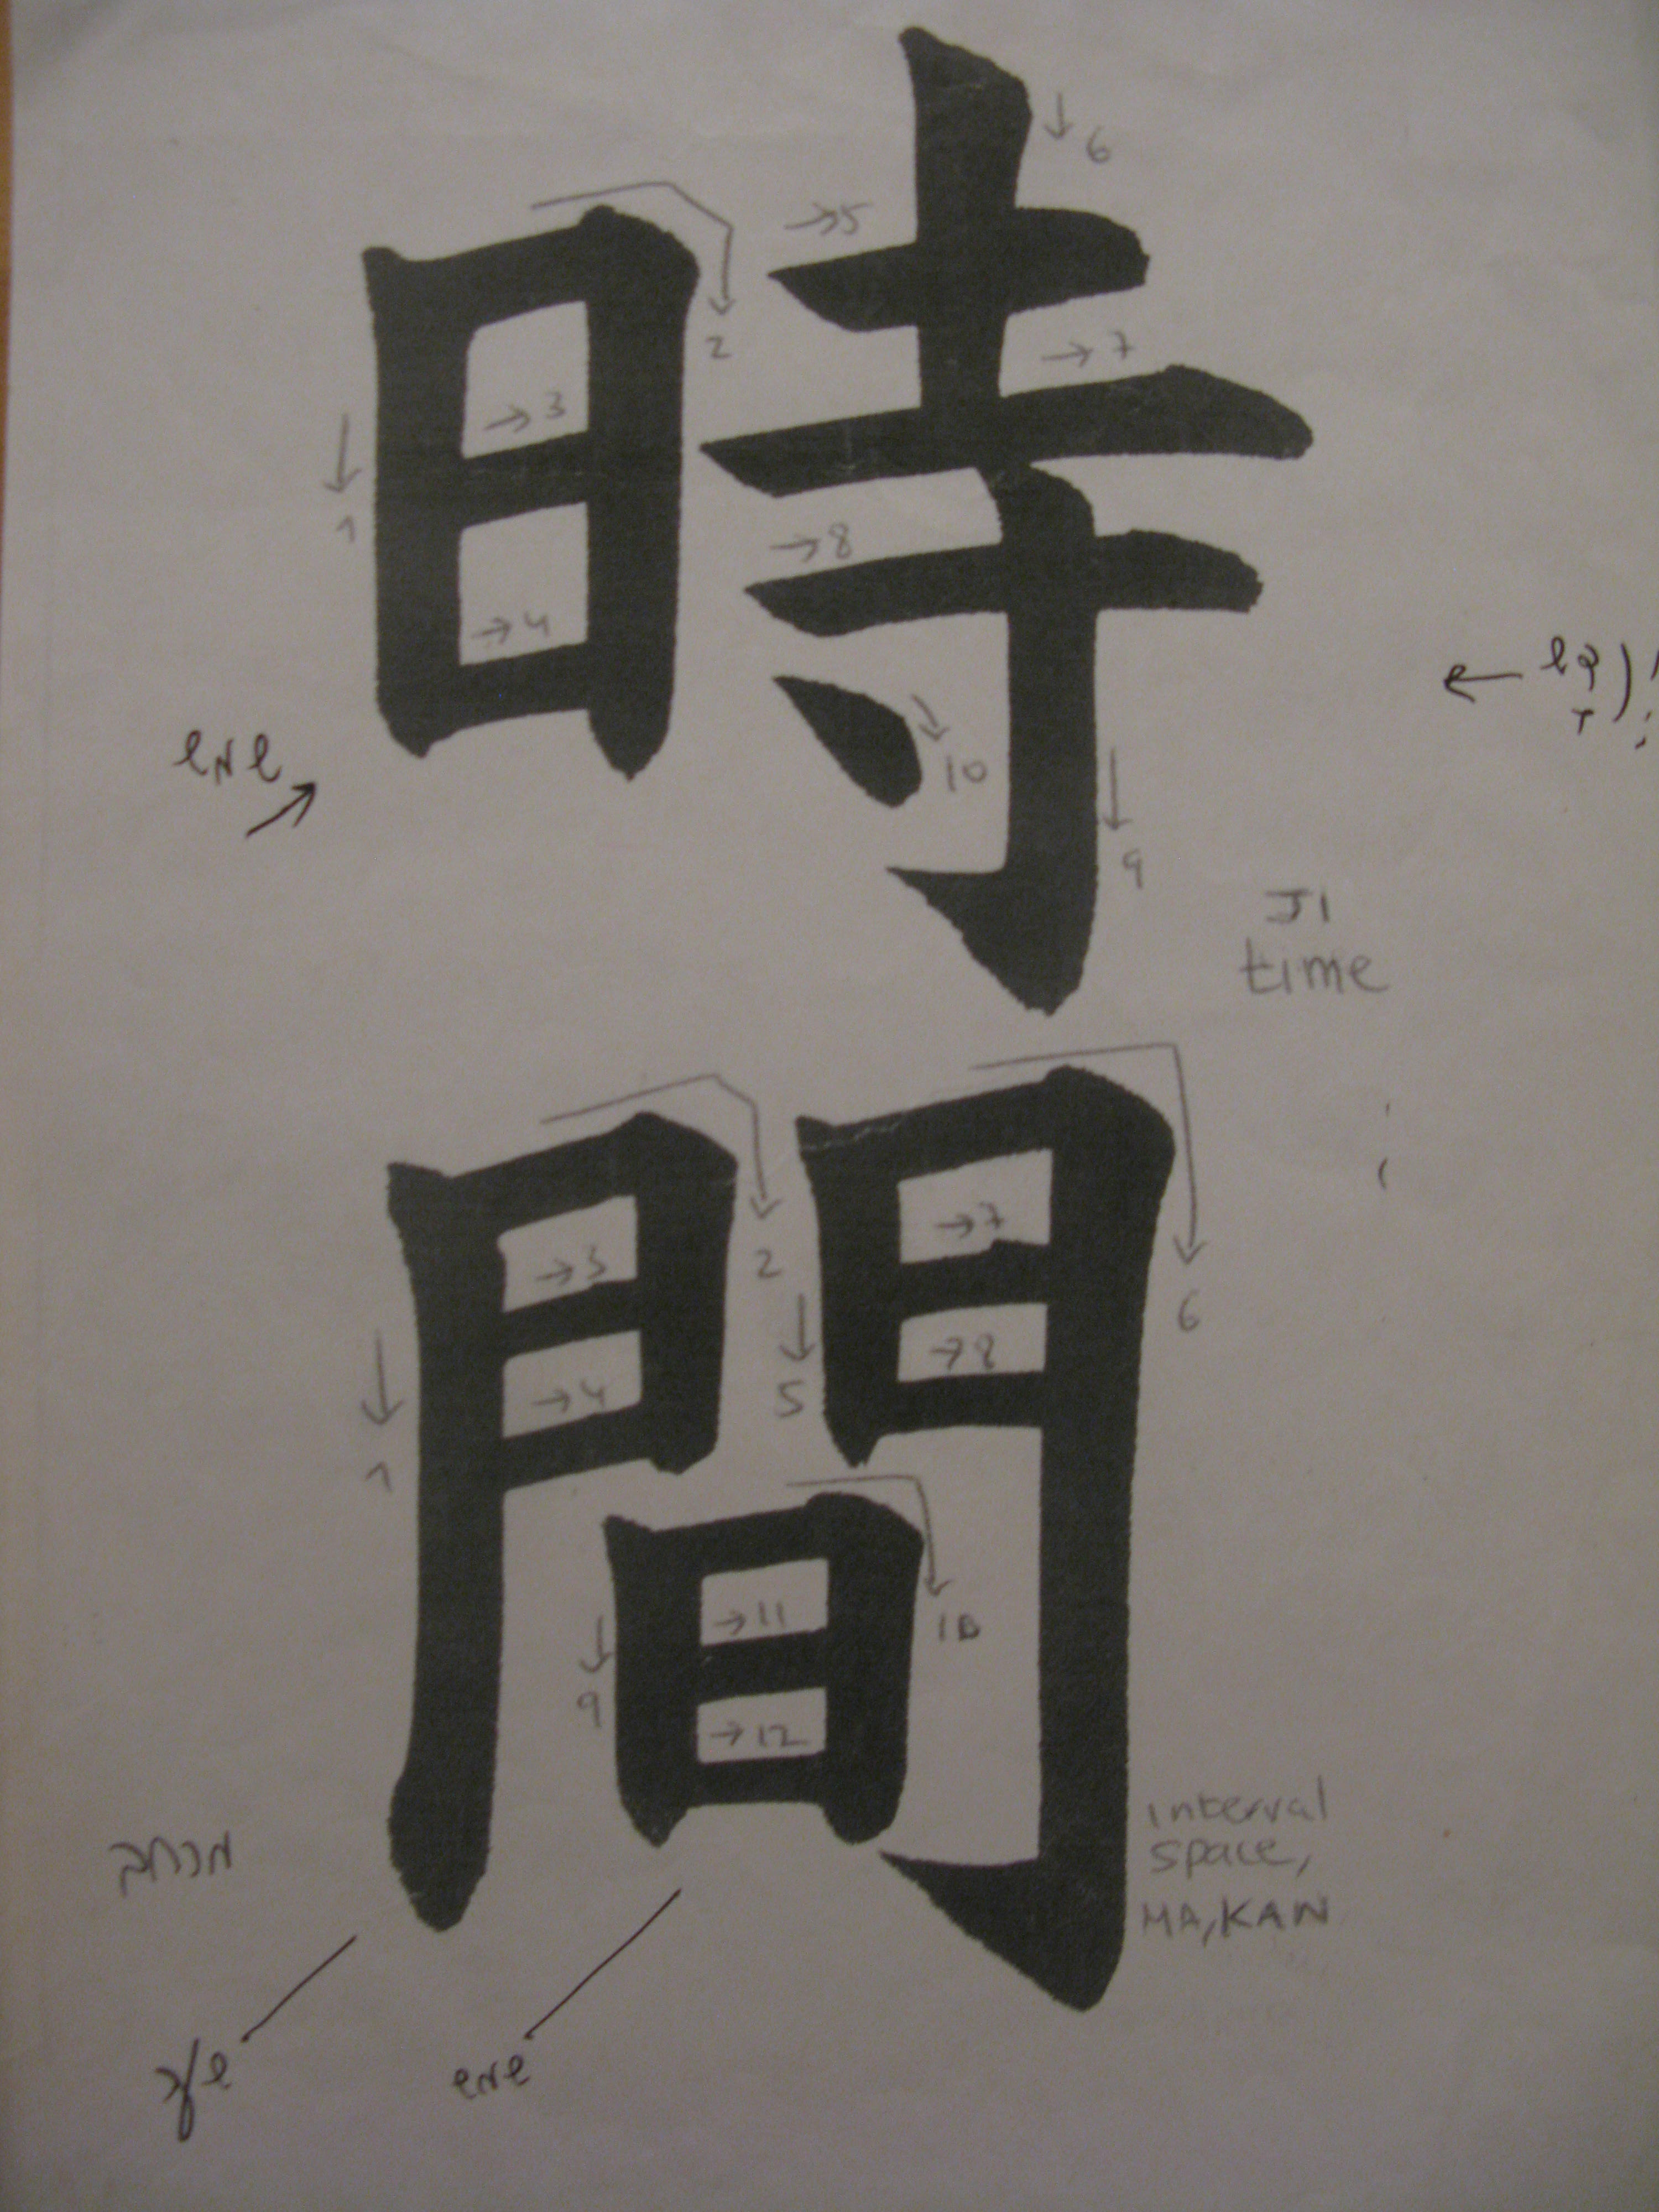 時
→5
↓6
2
→7
→3
↓1
→8
→4
שמש
10
↓9
JI
time
間
→7
→3
2
6
→8
→4
5
1
→11
10
9
→12
interval
space,
MA, KAN
שער
שמש